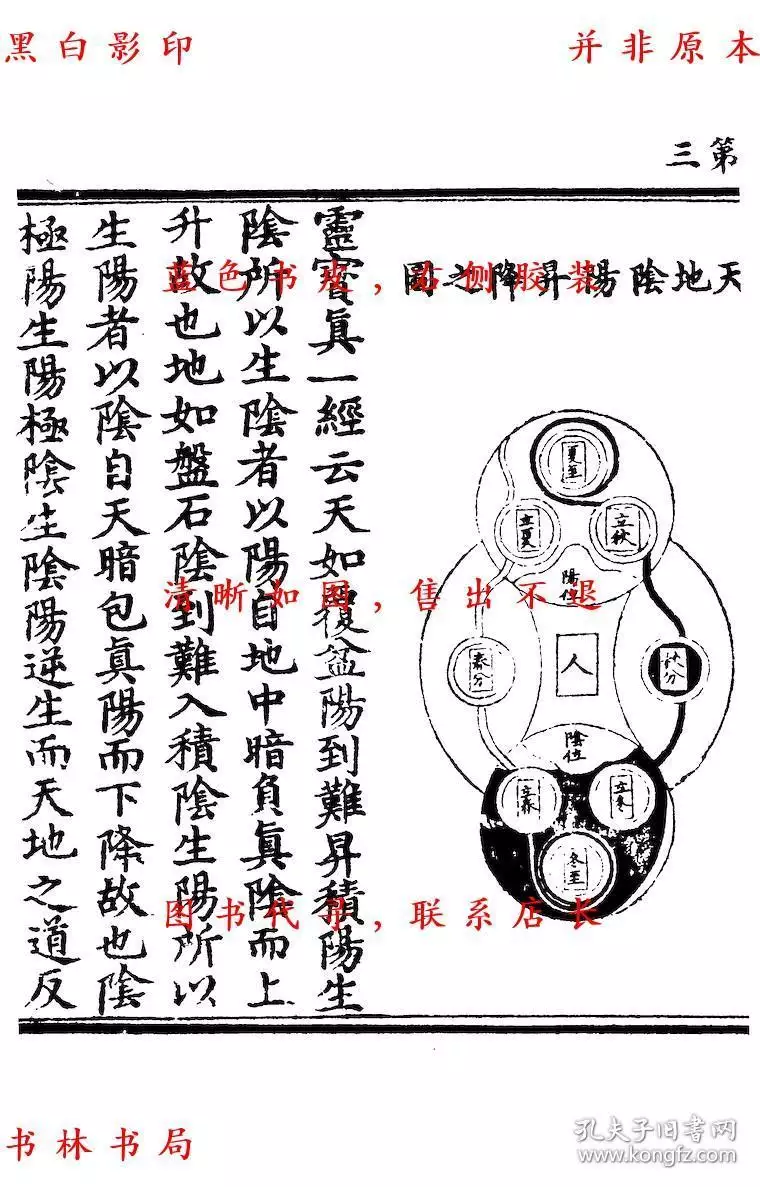 黑白影印
并非原本
第三
天地陰陽昇降之圖
夏至
立夏
立秋
陽位
春分
人
秋分
陰位
立春
立冬
冬至
靈寳眞一經云天如覆盆陽到難昇積陽生
陰所以生陰者以陽自地中暗負眞陰而上
升故也地如盤石陰到難入積陰生陽所以
生陽者以陰自天暗包眞陽而下降故也陰
極陽生陽極陰生陰陽逆生而天地之道反
蓝色书皮,右侧胶装
清晰如图,售出不退
图书代寻,联系店长
书林书局
孔夫子旧书网
www.kongfz.com